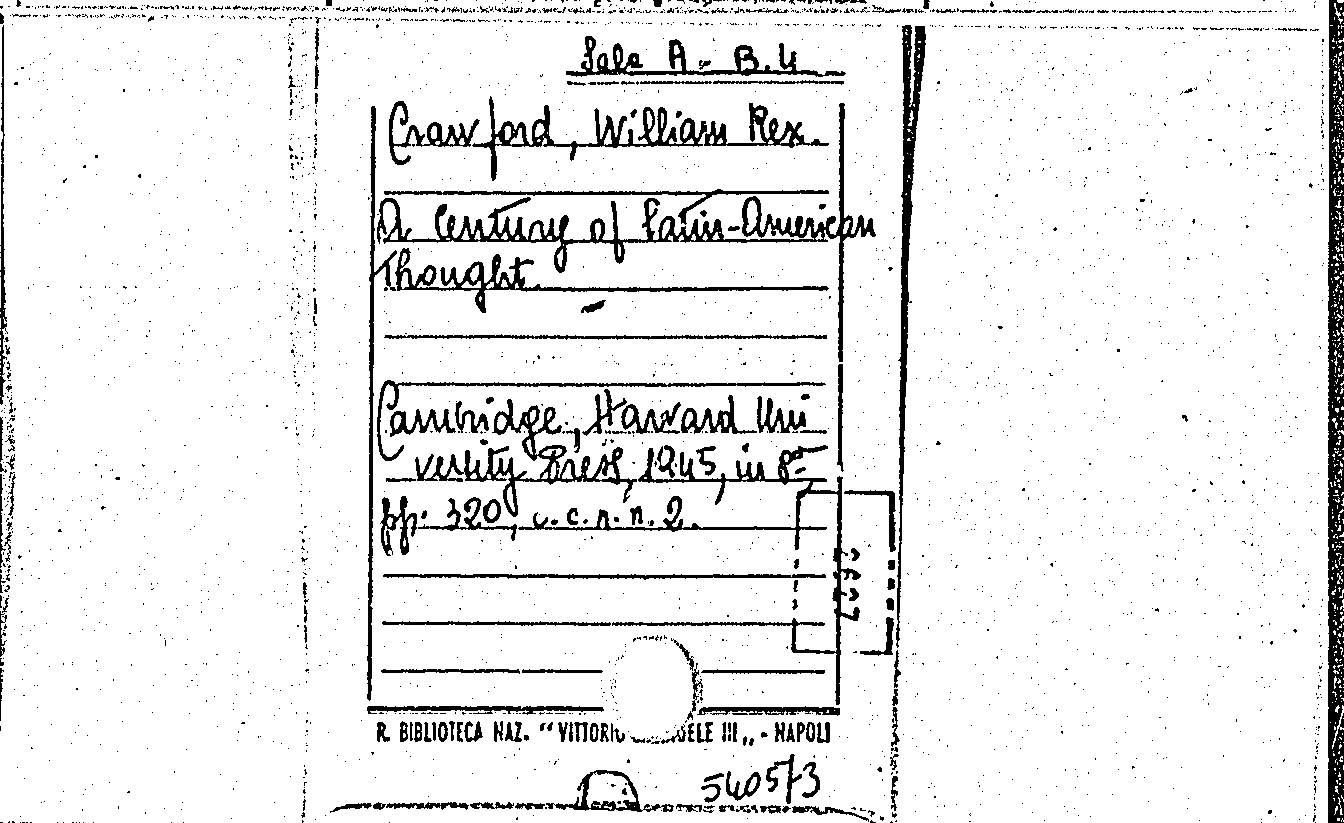 Sala A - B.4
Crawford, William Rex.
A Century of Latin-American
Thought.
Cambridge, Harvard Uni
versity Press, 1945, in 8°,
pp. 320, c.c.n.n. 2.
R. BIBLIOTECA NAZ. “VITTORIO ELE III„ - NAPOLI
540573